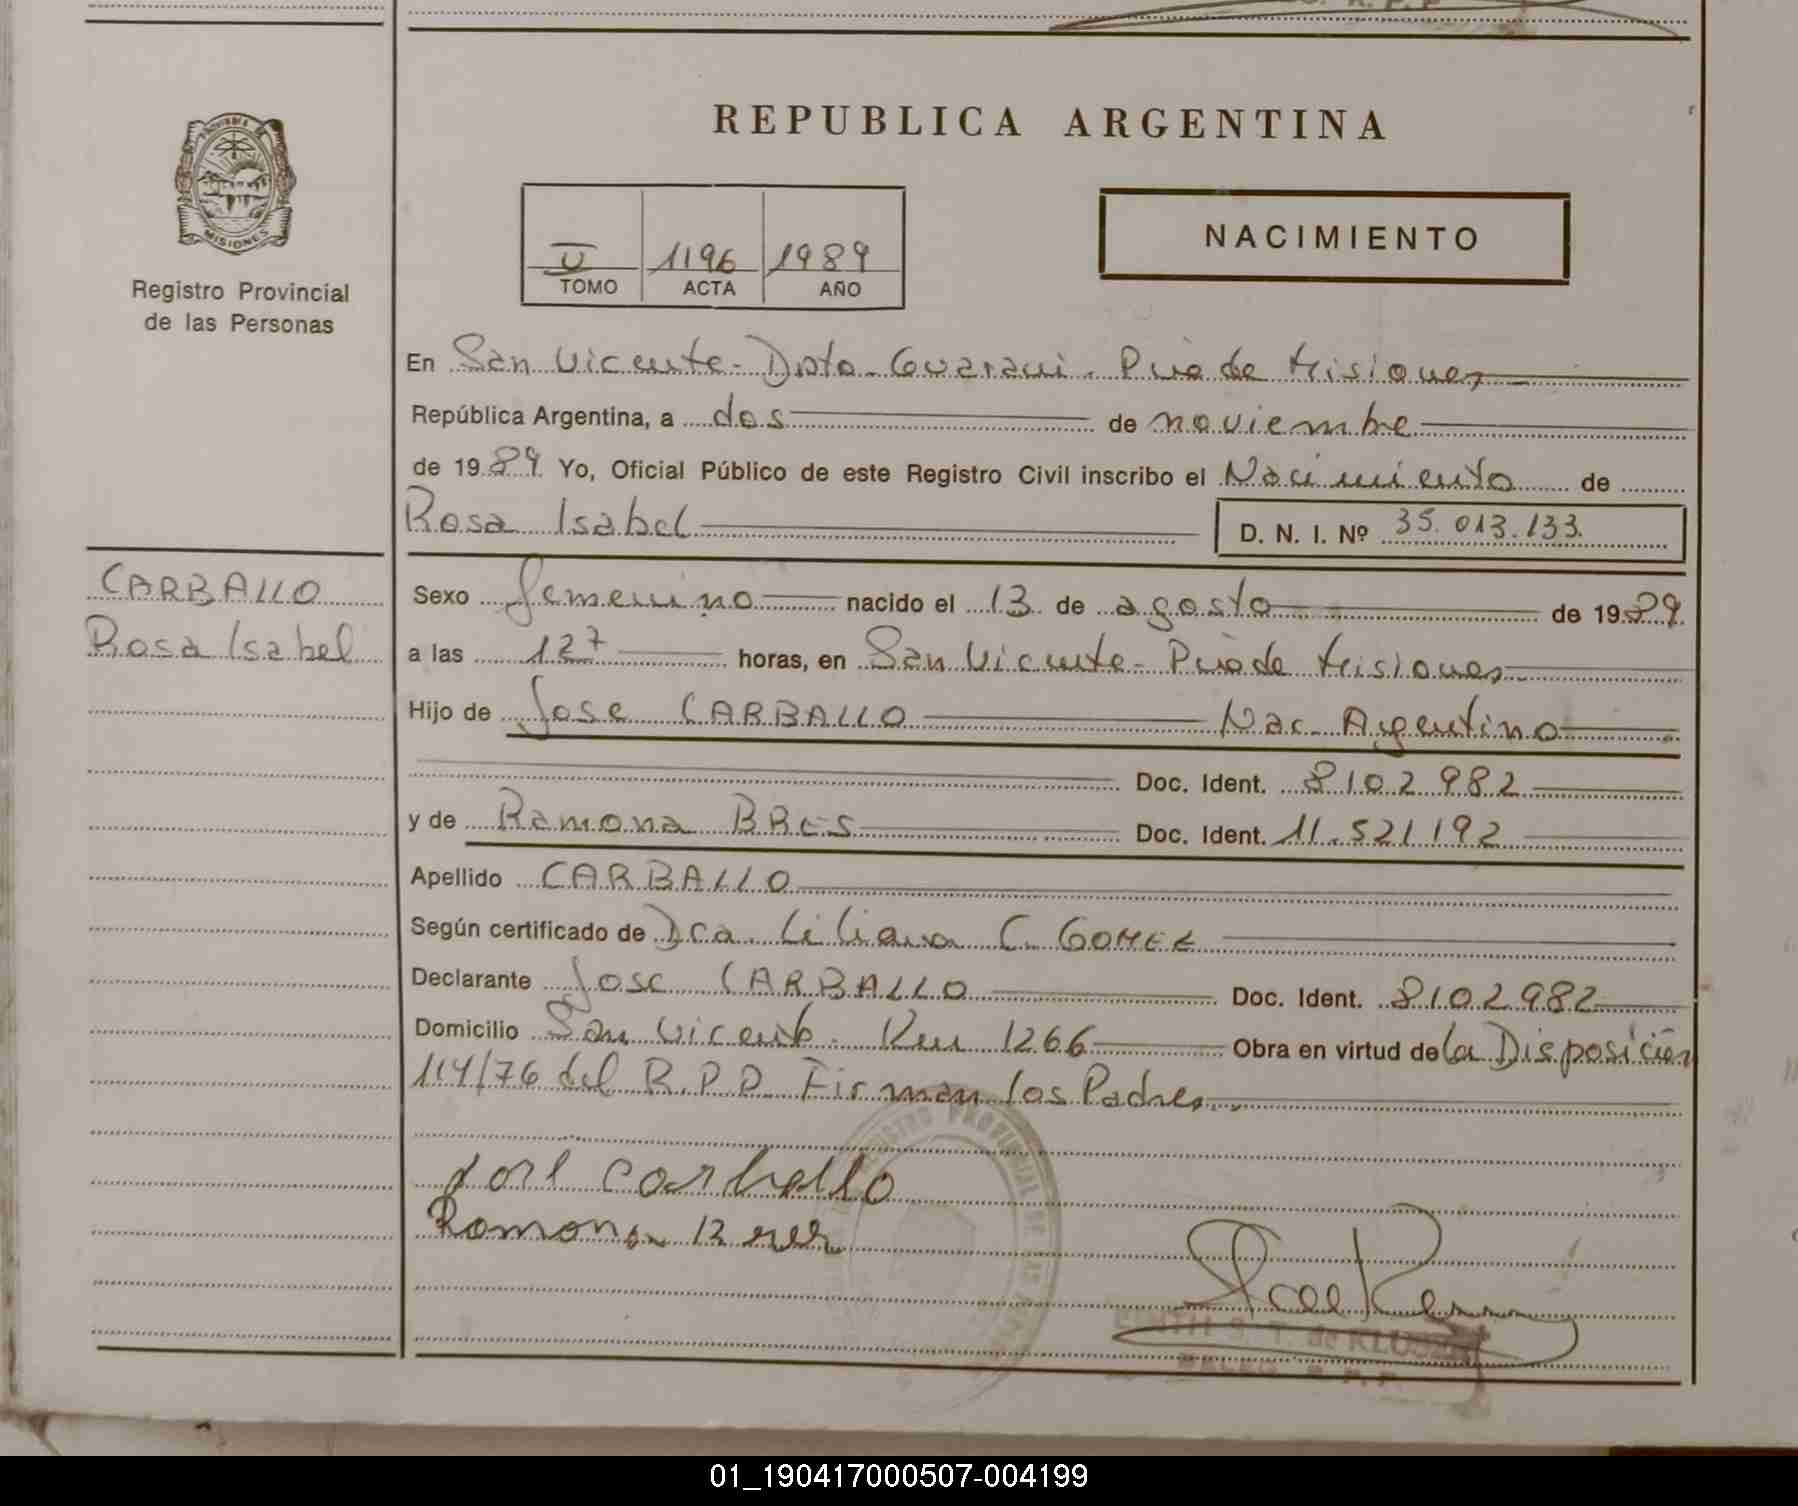 REPUBLICA ARGENTINA
PROVINCIA DE
MISIONES
Registro Provincial
de las Personas
V 1196 1989
TOMO ACTA AÑO
NACIMIENTO
En San Vicente - Dpto. Guarani. Pcia de Misiones
República Argentina, a dos de noviembre
de 1989 Yo, Oficial Público de este Registro Civil inscribo el Nacimiento de
Rosa Isabel
D. N. I. Nº 35.013.133
CARBALLO
Rosa Isabel
Sexo femenino nacido el 13 de agosto de 1989
a las horas, en San Vicente - Pcia de Misiones
Hijo de Jose CARBALLO Nac. Argentino
Doc. Ident. 8102982
y de Ramona Doc. Ident. 11.521192
Apellido CARBALLO
Según certificado de Dra. Liliana C. GOMEZ
Declarante Jose CARBALLO Doc. Ident. 8102982
Domicilio San Vicente. Km 1266 Obra en virtud de la Disposición
114/76 del R.P.P. Firman los Padres
Jose Carballo
Ramona
REGISTRO PROVINCIAL DE LAS
01_190417000507-004199